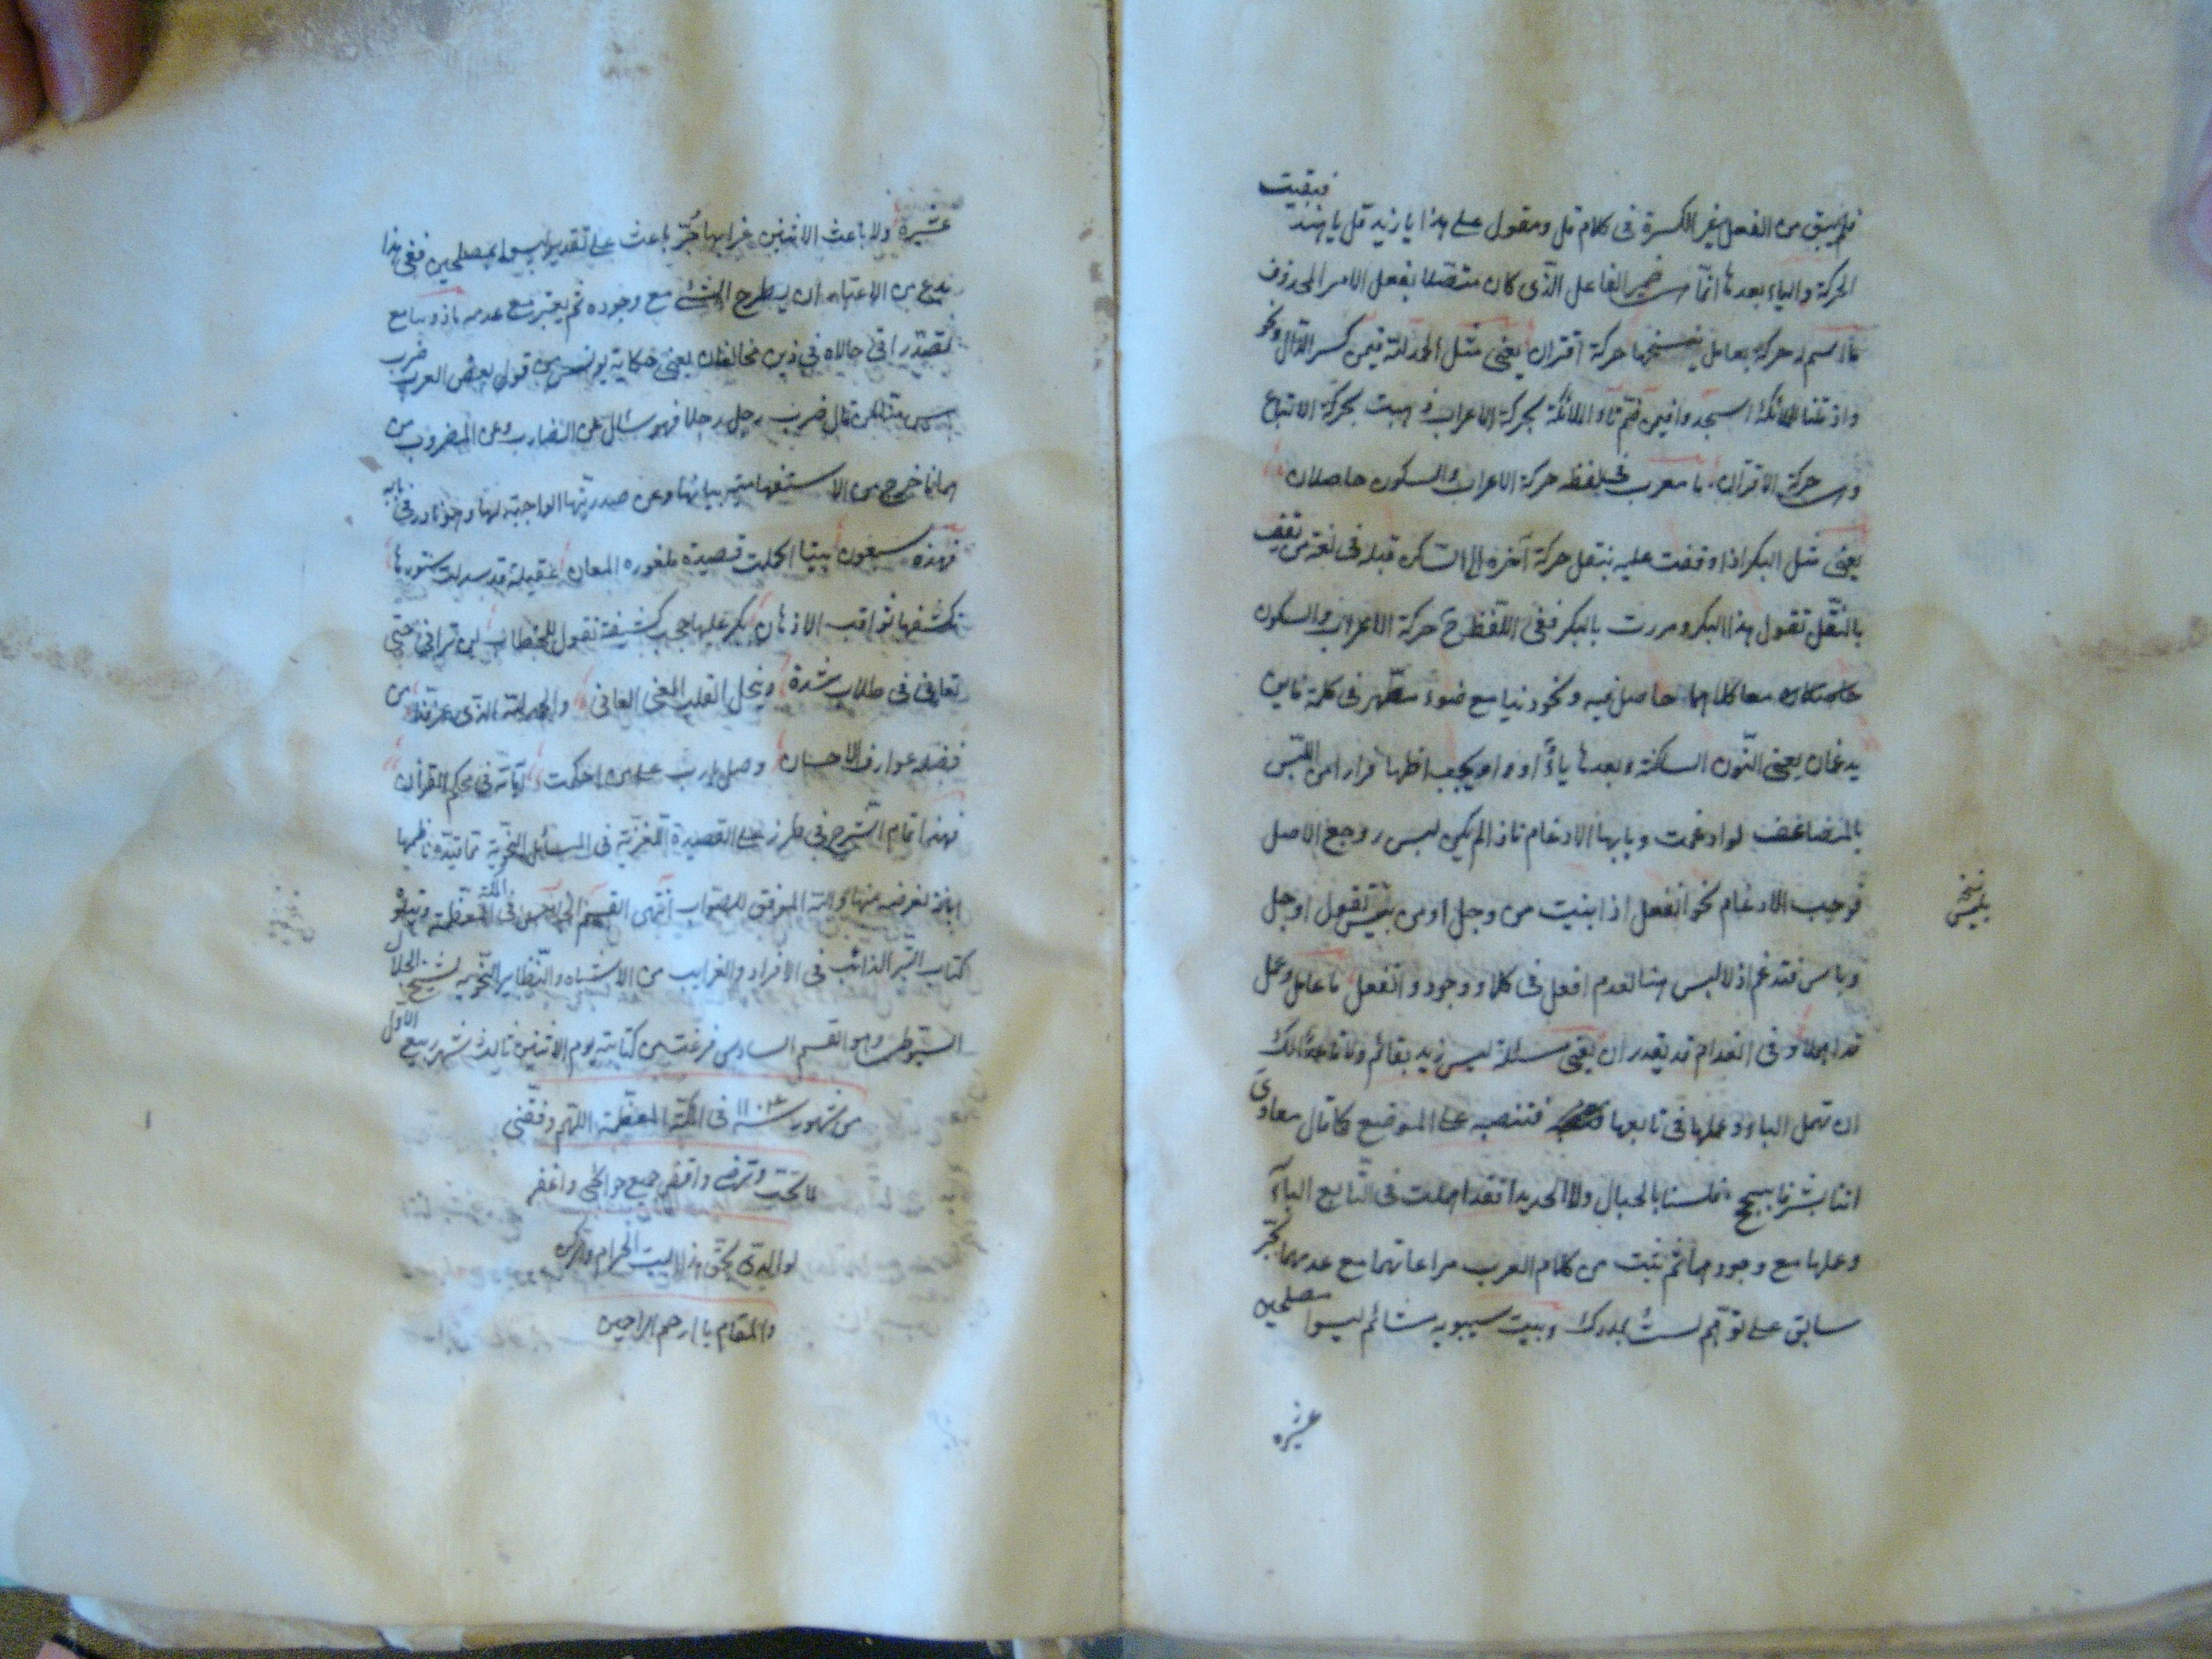 فبقيت
فلم يبق من الفعل غير الكسرة فى كلام قل ومقول على هذا يا زيد قل يا هند
الحركة والياء بعدها انما هى ضمير الفاعل الذى كان متصلا بفعل الامر المحذوف
ما اسم له حركة بعامل ينسخها حركة اقتران يعنى مثل الحمد لله فيمن كسر الدال ونحو
واذ قلنا للملائكة اسجدوا فيمن ضم تاء الملائكة حركة الاعراب ذهبت بحركة الاتباع
وهى حركة الاقتران ما معرب فى لفظه حركة الاعراب والسكون حاصلان
يعنى مثل البكر اذا وقفت عليه بنقل حركة آخره الى الساكن قبله فى لغة من يقف
بالنقل تقول هذا البكر ومررت بالبكر ففى اللفظ ح حركة الاعراب والسكون
معا كلاهما حاصل فيه ونحو دنيا مع ضوء مظهر فى كلمة نا من
يدغمان يعنى النون الساكنة وبعدها ياء او واو يجب اظهارها فرارا من اللبس
بالمضاعف لو ادغمت وبابها الادغام فاذا لم يكن لبس روجع الاصل
فوجب الادغام نحو انفعل اذا بنيت من وجل او من يئس تقول اوجل
ويأس فتدغم اذ لا لبس هنا لعدم افعل فى كلام ووجود انفعل ما عامل وعمل
قد اهملا وفى انعدام قد يقدران يعنى مسئلة ليس زيد بقائم ولا قاعدا لك
ان تهمل الباء وعملها فى تابعها فتنصبه على الموضع كما قال معاوى
اننا بشر فاسجح فلسنا بالجبال ولا الحديدا فقد اهملت فى التابع الباء
وعملها مع وجودهما ثم ثبت من كلام العرب مراعاتهما مع عدمهما نحو
سابق على توهم لست بمدرك وبيت سيبويه مشائم ليسوا مصلحين
عشيرة
عشيرة ولا ناعب الا ببين غرابها بجر ناعب على تقدير ليسوا بمصلحين ففى هذا
بدع من الاعتبار ان يطرح الشئ مع وجوده ثم يعتبر مع عدمه
فى حالاه فى ذين مخالفان يعنى حكاية يونس من قول بعض العرب ضرب
من منا لمن قال ضرب رجل رجلا فهو سئال عن الضارب وعن المضروب من
هما خرج من الاستفهامية بنائها وعن صدريتها الواجبة لها وهو نادر فى بابه
فهذه سبعون بيتا اكملت قصيدة ملغوزة المعان عقيلة قد سدلت ستورها
تكشفها ثواقب الاذهان بكر عليها حجب كثيفة تقول للخطاب لن ترانى حتى
تعانى فى طلاب شدة وينحل القلب المعنى العانى والحمد لله الذى عرفنا من
فضله عوارف الاحسان وصل يا رب على من احكمت اياته فى محكم القرآن
فهذا تمام الشرح فى طرز على القصيدة اللغزية فى المسائل النحوية مما قيده ناظمها
ابانة لغرضه منها والله الموفق للصواب انتهى القسم الخامس فى المكة المعظمة ويتلوه
كتاب التبر الذائب فى الافراد والغرايب من الاشباه والنظاير النحوية لشيخ الجلال
السيوطى وهو القسم السادس فرغت من كتابته يوم الاثنين ثالث شهر ربيع الاول
من شهور سنة فى المكة المعظمة اللهم وفقنى
لما تحب وترضى واقض جميع حوائجى واغفر
لوالدى بحق هذا البيت الحرام والركن
والمقام يا ارحم الراحمين